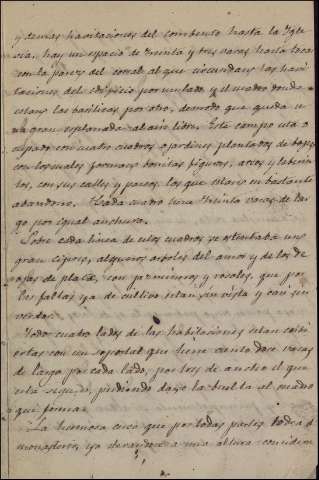 y demas havitaciones del combento hasta la Igle
sia, hay un espacio de treinta y tres varas hasta tocar
con la pared del corral al que circundan las havi
taciones del edificio por un lado y el cuadro donde
estan las basilicas por otro, de modo que queda u
na gran esplanada al aire libre. Este campo está o
cupado con cuatro cuadros o jardines plantados de bojes
con los cuales forman bonitas figuras, arcos y laberin
tos, con sus calles y paseos, los que estan en bastante
abandono. Cada cuatro tiene treinta varas de lar
go por igual anchura.
Sobre cada linea de estos cuadros se
gran cipres, algunos arboles del amor y de los de
ojas de plata, con y rosales, que por
ser faltas ya de cultivo están sin vista y casi sin
verdor.
Todos cuatro lados de las habitaciones estan cubi
ertas con un soportal que tiene ciento doce varas
de largo por cada lado, por tres de ancho el que
esta seguido, pudiendo darse la buelta al cuadro
que forma.
La hermosa cerca que por todas partes rodea el
monasterio, ya a una altura conciden